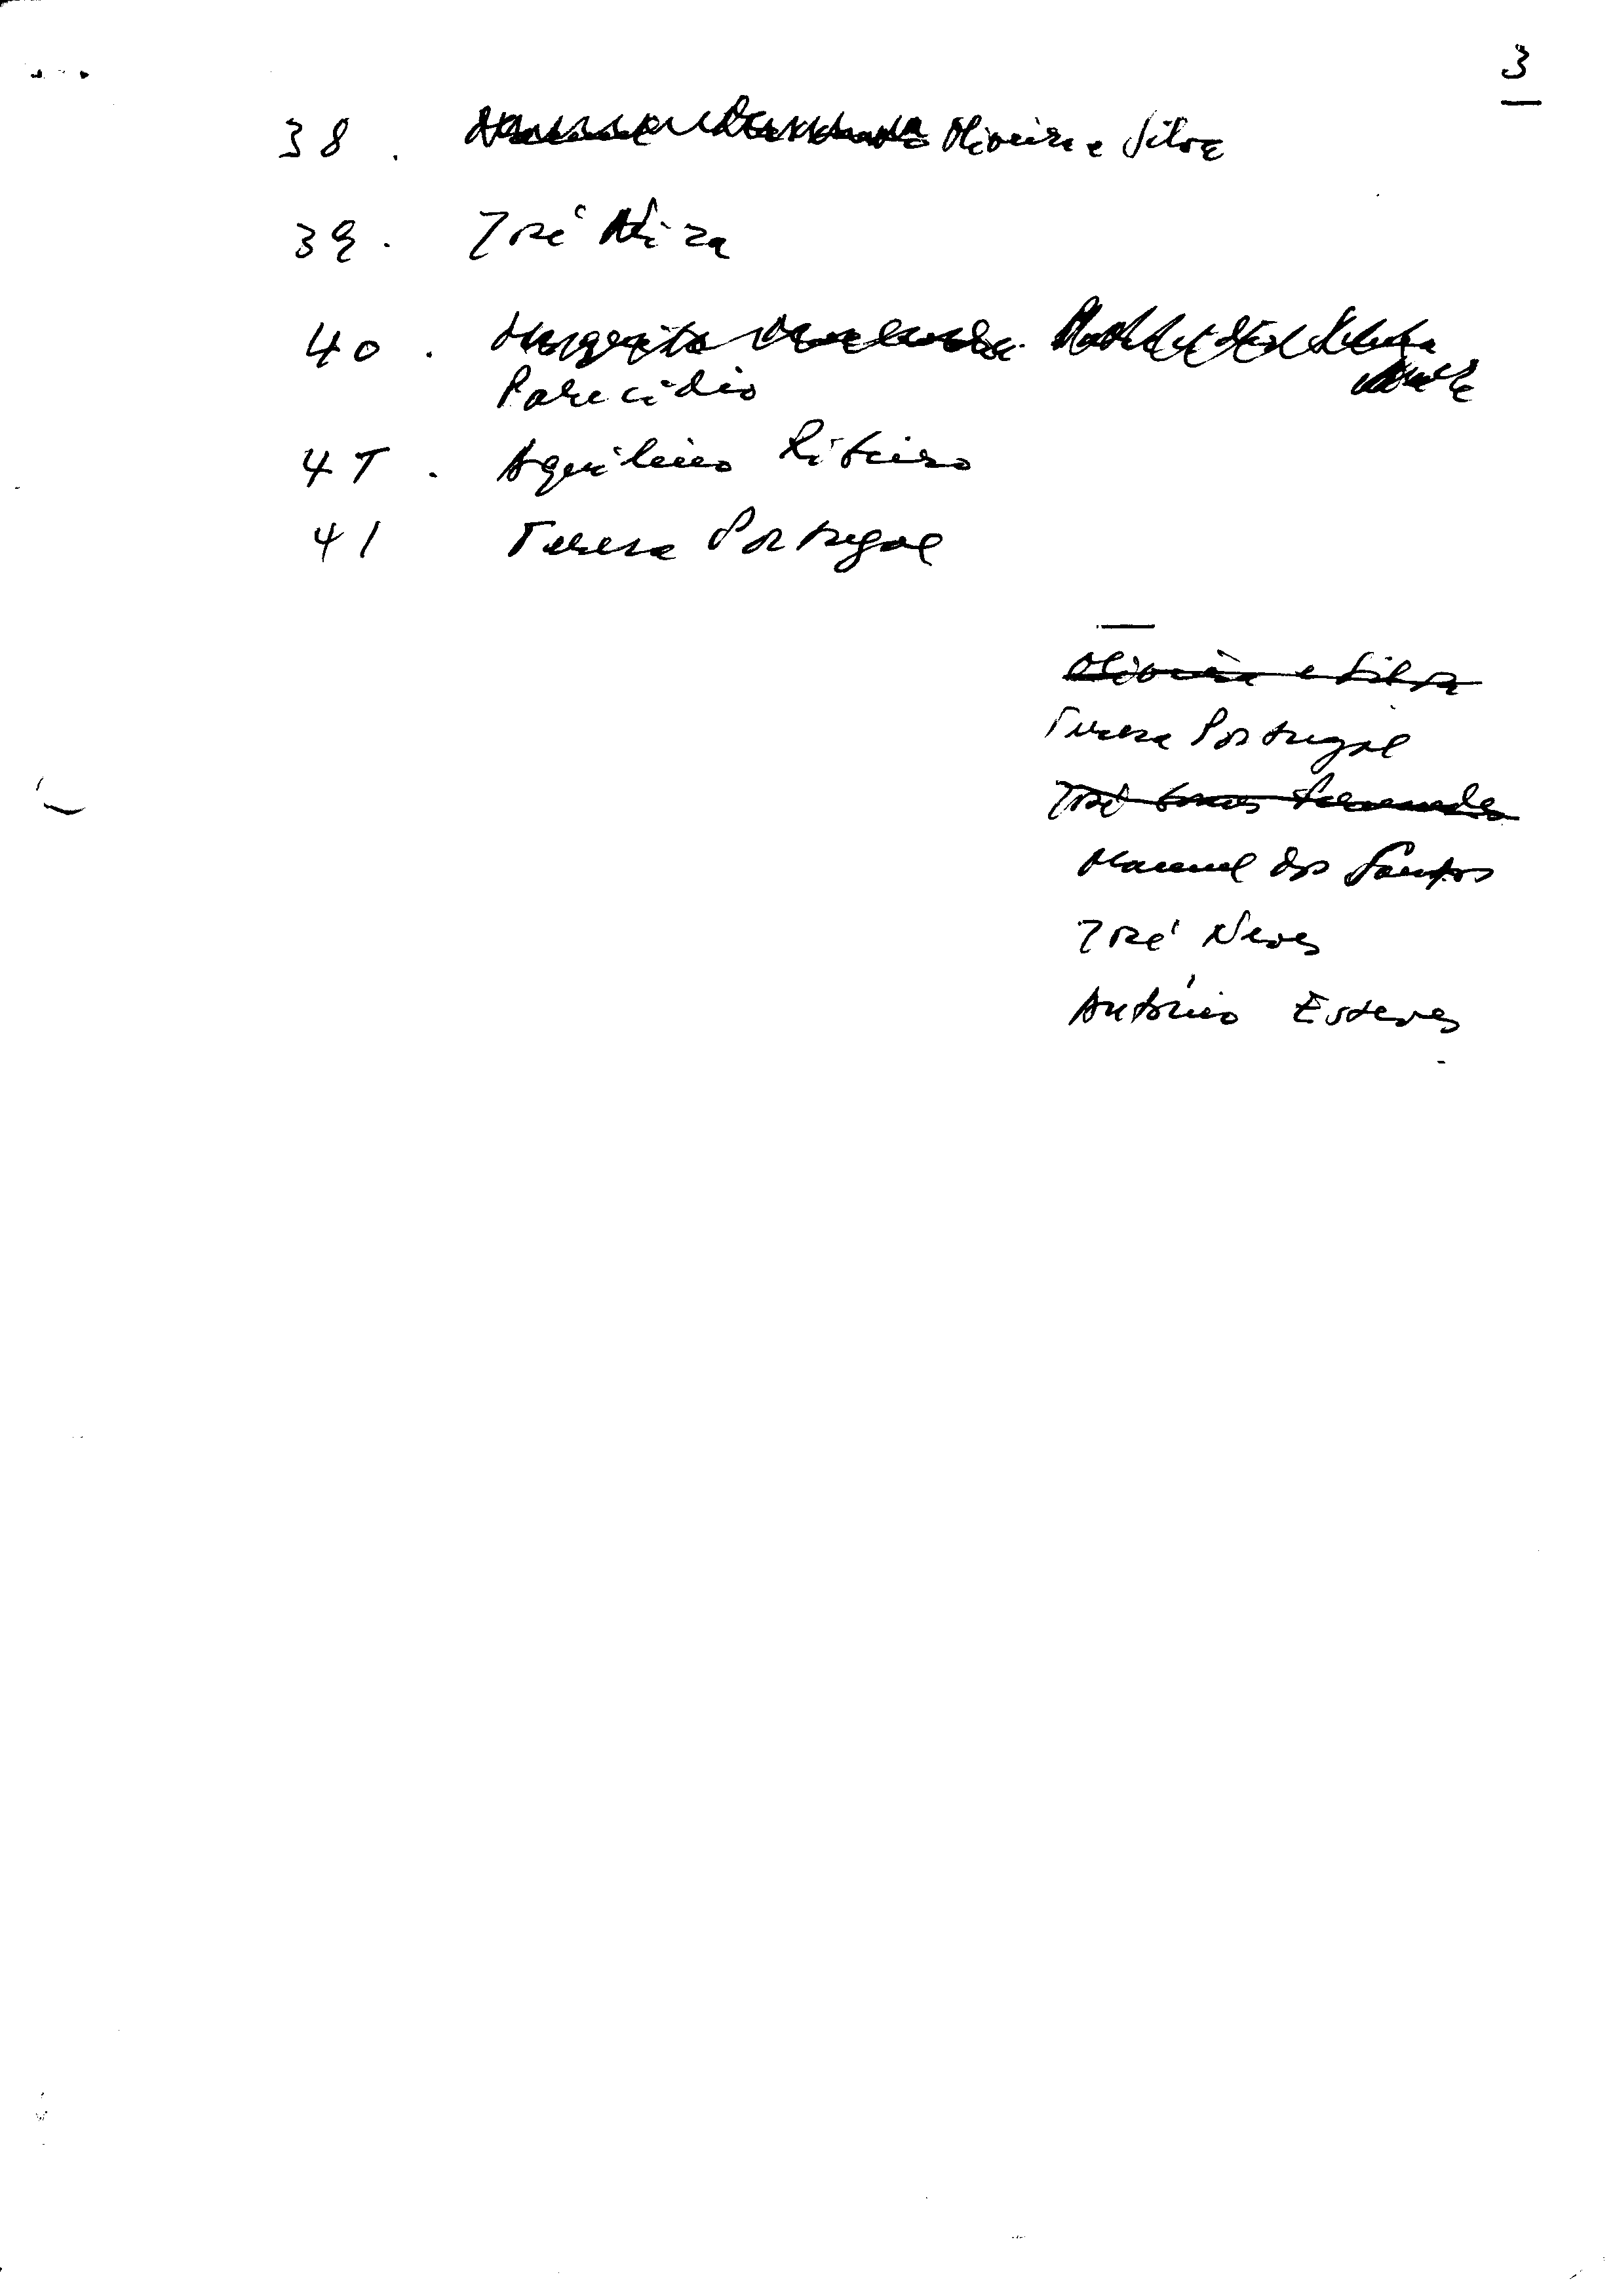 3
38. Oliveira e Silva
39. José Niza
40.
Parcídio
4T. Aquilino Ribeiro
41 Teresa Portugal
Oliveira e Silva
Teresa Portugal
José
Manuel dos Santos
José Neves
António Esteves